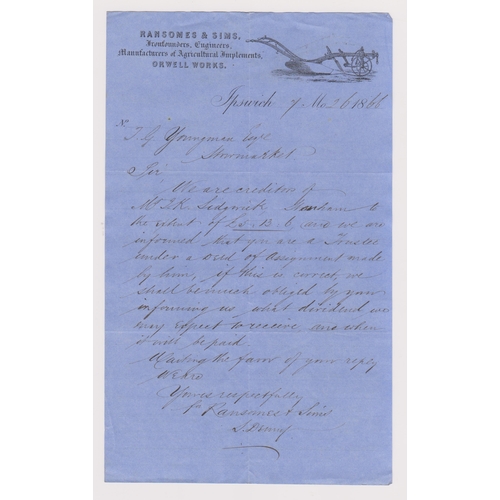 RANSOMES & SIMS,
Ironfounders, Engineers,
Manufacturers of Agricultural Implements,
ORWELL WORKS.
Ipswich 7 Mo 26 1866
T. G. Youngman Esqre
Stowmarket
Sir
We are creditors of
Mr J. K. Sedgwick to
the extent of £5. 13. 6 and we are
informed that you are a Trustee
under a Deed of Assignment made
by him, if this is correct, we
shall be much obliged by your
informing us what dividend we
may expect to receive and when
it will be paid.
Waiting the favor of your reply
We are
Yours respectfully
Ransomes & Sims